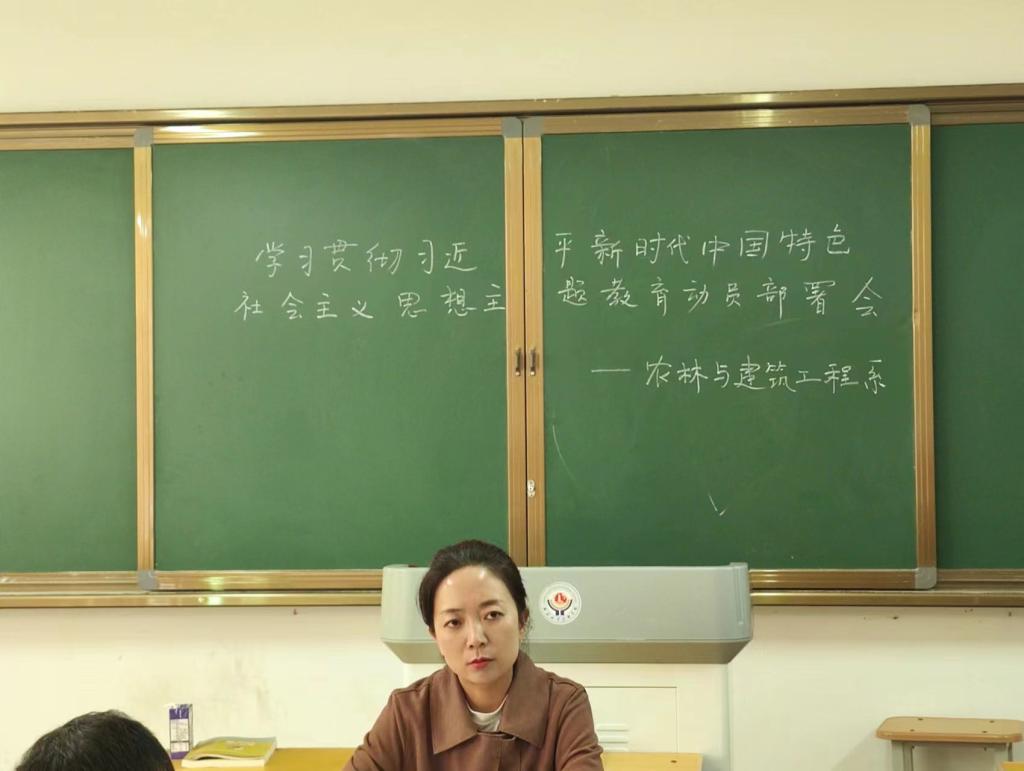 学习贯彻习近平新时代中国特色
社会主义思想主题教育动员部署会
—农林与建筑工程系